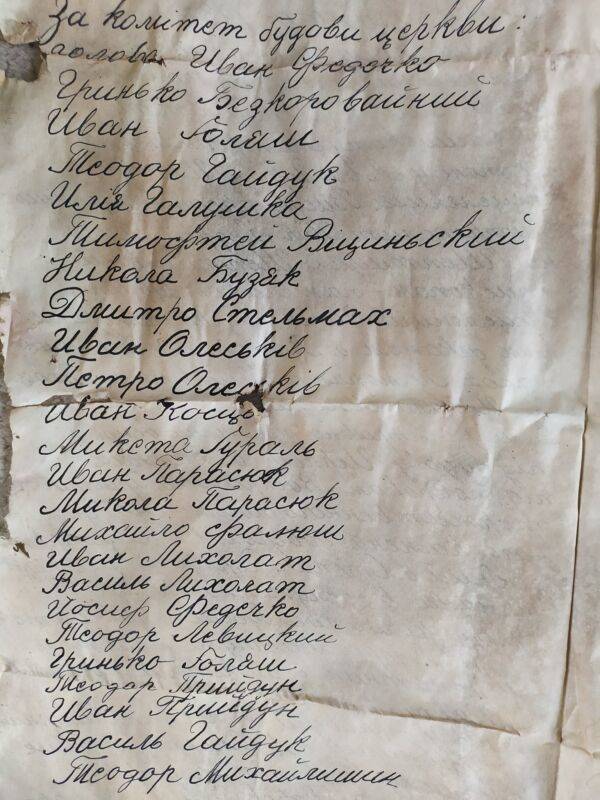 За комітет будови церкви:
голова Иван Федечко
Гринько Безкоровайний
Иван Голяш
Теодор Гайдук
Илія Галушка
Тимофтей Віциньский
Никола Бузяк
Дмитро Стельмах
Иван Олеськів
Петро Олеськів
Иван
Микета Гураль
Иван Парасюк
Микола Парасюк
Михайло Фалюш
Иван Лихолат
Василь Лихолат
Йосиф Федечко
Теодор Левицкий
Гринько Голяш
Теодор Прийдун
Иван Прийдун
Василь Гайдук
Теодор Михайлишин